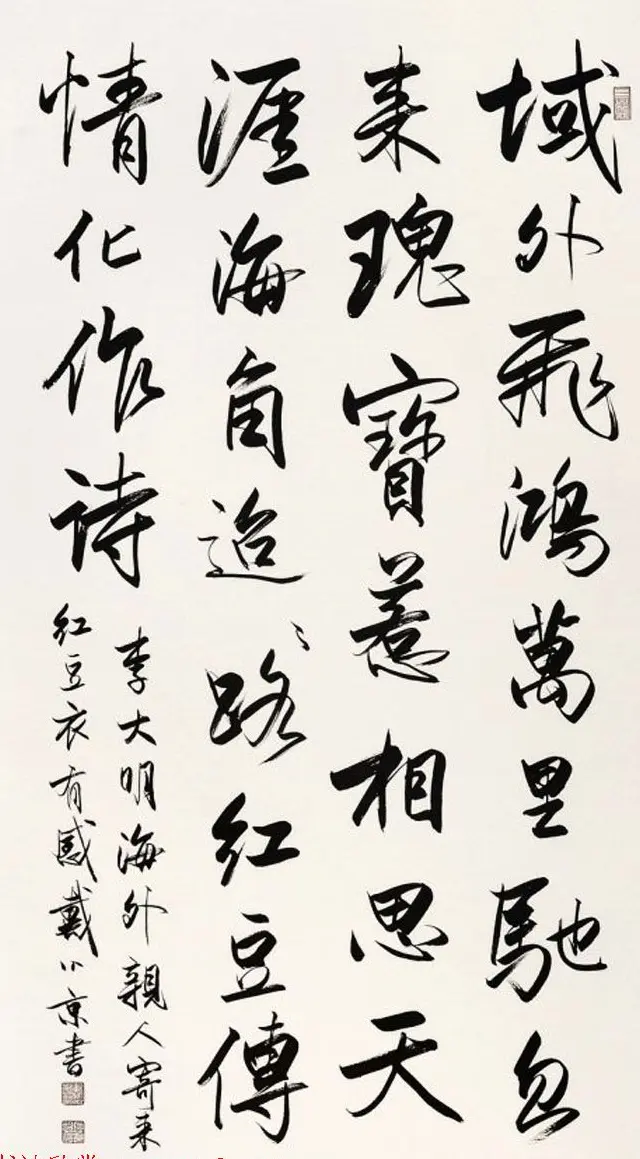 域外飛鴻萬里馳忽
来瑰寶惹相思天
涯海角迢〻路红豆傳
情化作诗
李大明海外親人寄来
红豆衣有感戴小京書